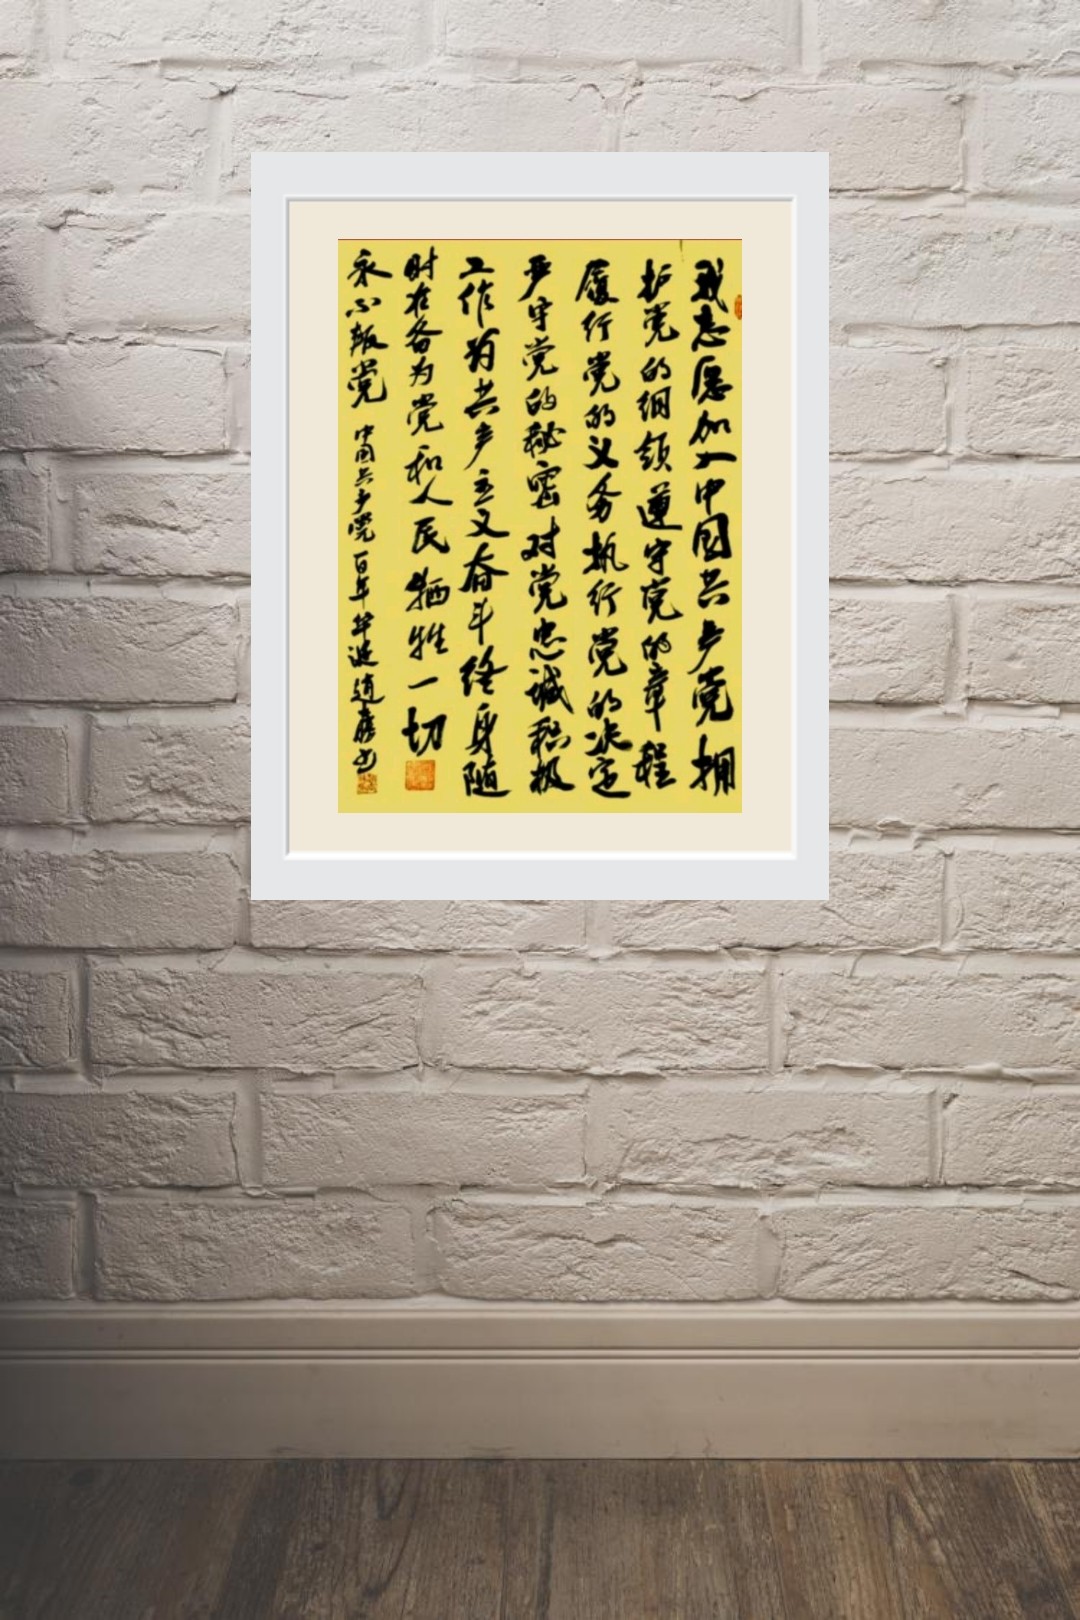 我志愿加入中國共产党拥
护党的纲领遵守党的章程
履行党的义务执行党的决定
严守党的秘密对党忠诚积极
工作为共产主义奋斗终身随
时准备为党和人民牺牲一切
永不叛党 中国共产党百年华诞